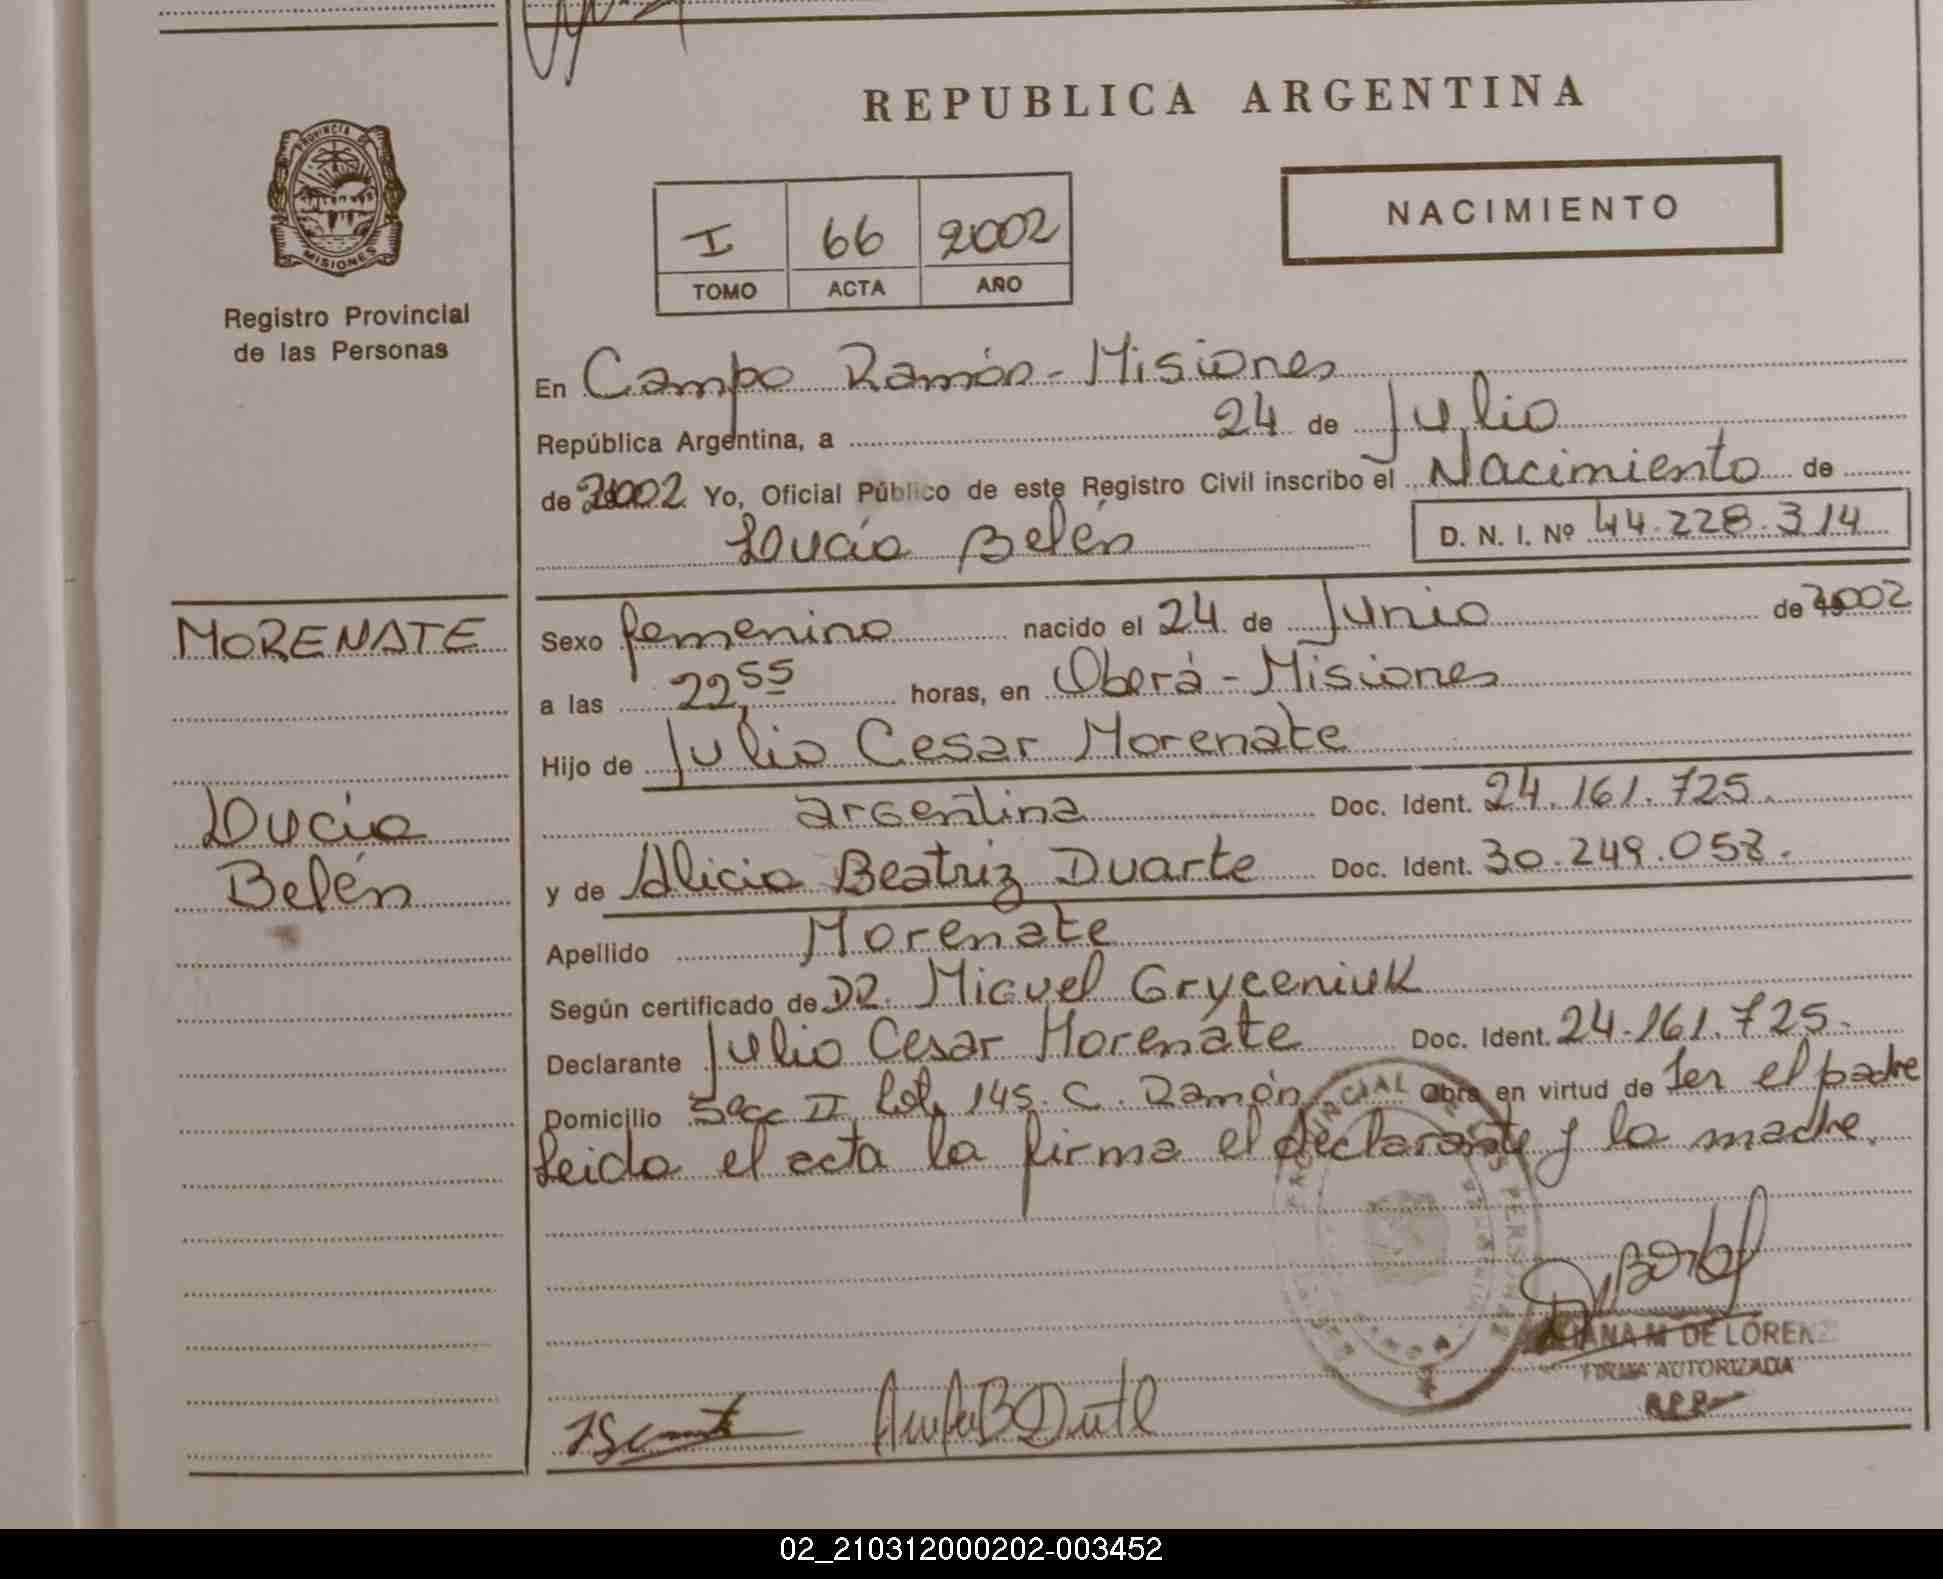 REPUBLICA ARGENTINA
PROVINCIA DE
MISIONES
Registro Provincial
de las Personas
I 66 2002
TOMO ACTA AÑO
NACIMIENTO
En Campo Ramón - Misiones
República Argentina, a 24 de Julio
de 2002 Yo, Oficial Público de este Registro Civil inscribo el Nacimiento de
Lucía Belén D. N. I. Nº 44.228.314
MORENATE
Lucía
Belén
Sexo femenino nacido el 24 de Junio de 2002
a las 22,55 horas, en Oberá - Misiones
Hijo de Julio Cesar Morenate
argentina Doc. Ident. 24.161.725.
y de Alicia Beatriz Duarte Doc. Ident. 30.249.058.
Apellido Morenate
Según certificado de DR. Miguel Gryceniuk
Declarante Julio Cesar Morenate Doc. Ident. 24.161.725.
Domicilio Secc II Lote 145. C. Ramón Obra en virtud de ser el padre
Leida el acta la firma el declarante y la madre.
DE LORENZ
FIRMA AUTORIZADA
R.P.P.
02_210312000202-003452